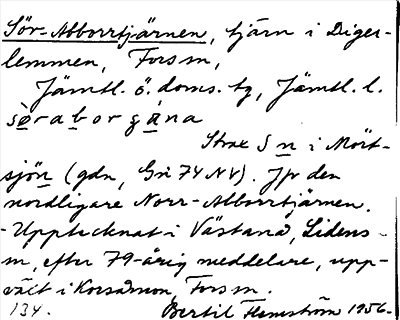 Sör-Abborrtjärnen, tjärn i Diger-
lemmen, Fors m,
Jämtl. ö. doms. tg, Jämtl. l.
sò̤rabborgána
Strax S n i Mört-
sjön (gdn, Gri 74 NV). Jfr den
nordligare Norr-Abborrtjärnen.
- Upptecknat i Västanå, Lidens -
m, efter 79-årig meddelare, upp-
växt i Korsåmon, Fors m.
134. Bertil Flemström 1956-